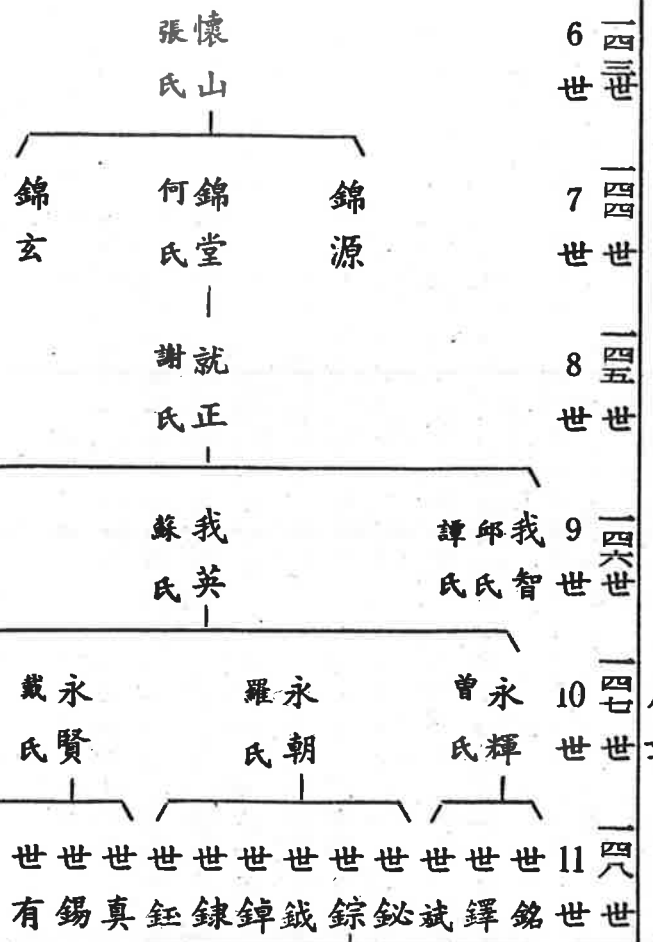 一四三世
6世
懷山
張氏
一四四世
7世
錦源
錦堂
何氏
錦玄
一四五世
8世
就正
謝氏
一四六世
9世
我智
邱氏
譚氏
我英
蘇氏
一四七世
10世
永輝
曾氏
永朝
羅氏
永賢
戴氏
一四八世
11世
世銘
世鐸
世斌
世鉍
世錝
世鉞
世鋽
世
世鈺
世真
世錫
世有